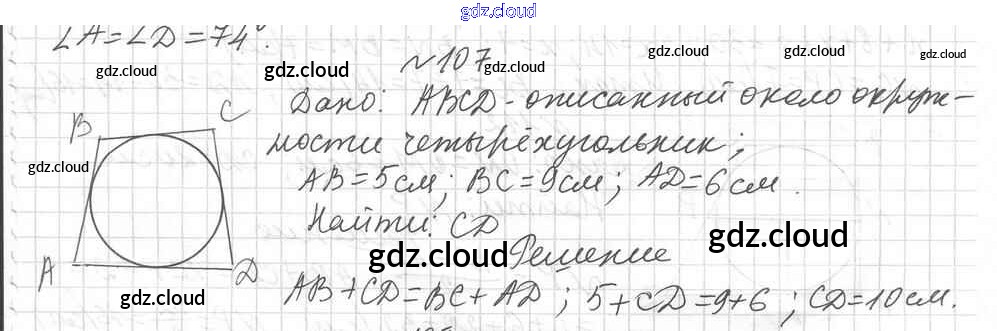 gdz.cloud
∠A=∠D=74°.
№107
gdz.cloud gdz.cloud gdz.cloud gdz.cloud gdz.cloud gdz.cloud
Дано: ABCD - описанный около окруж-
ности четырёхугольник;
B C
gdz.cloud
AB=5см; BC=9см; AD=6см.
Найти: CD
gdz.cloud gdz.cloud
Решение
A D
gdz.cloud
AB+CD=BC+AD; 5+CD=9+6; CD=10см.